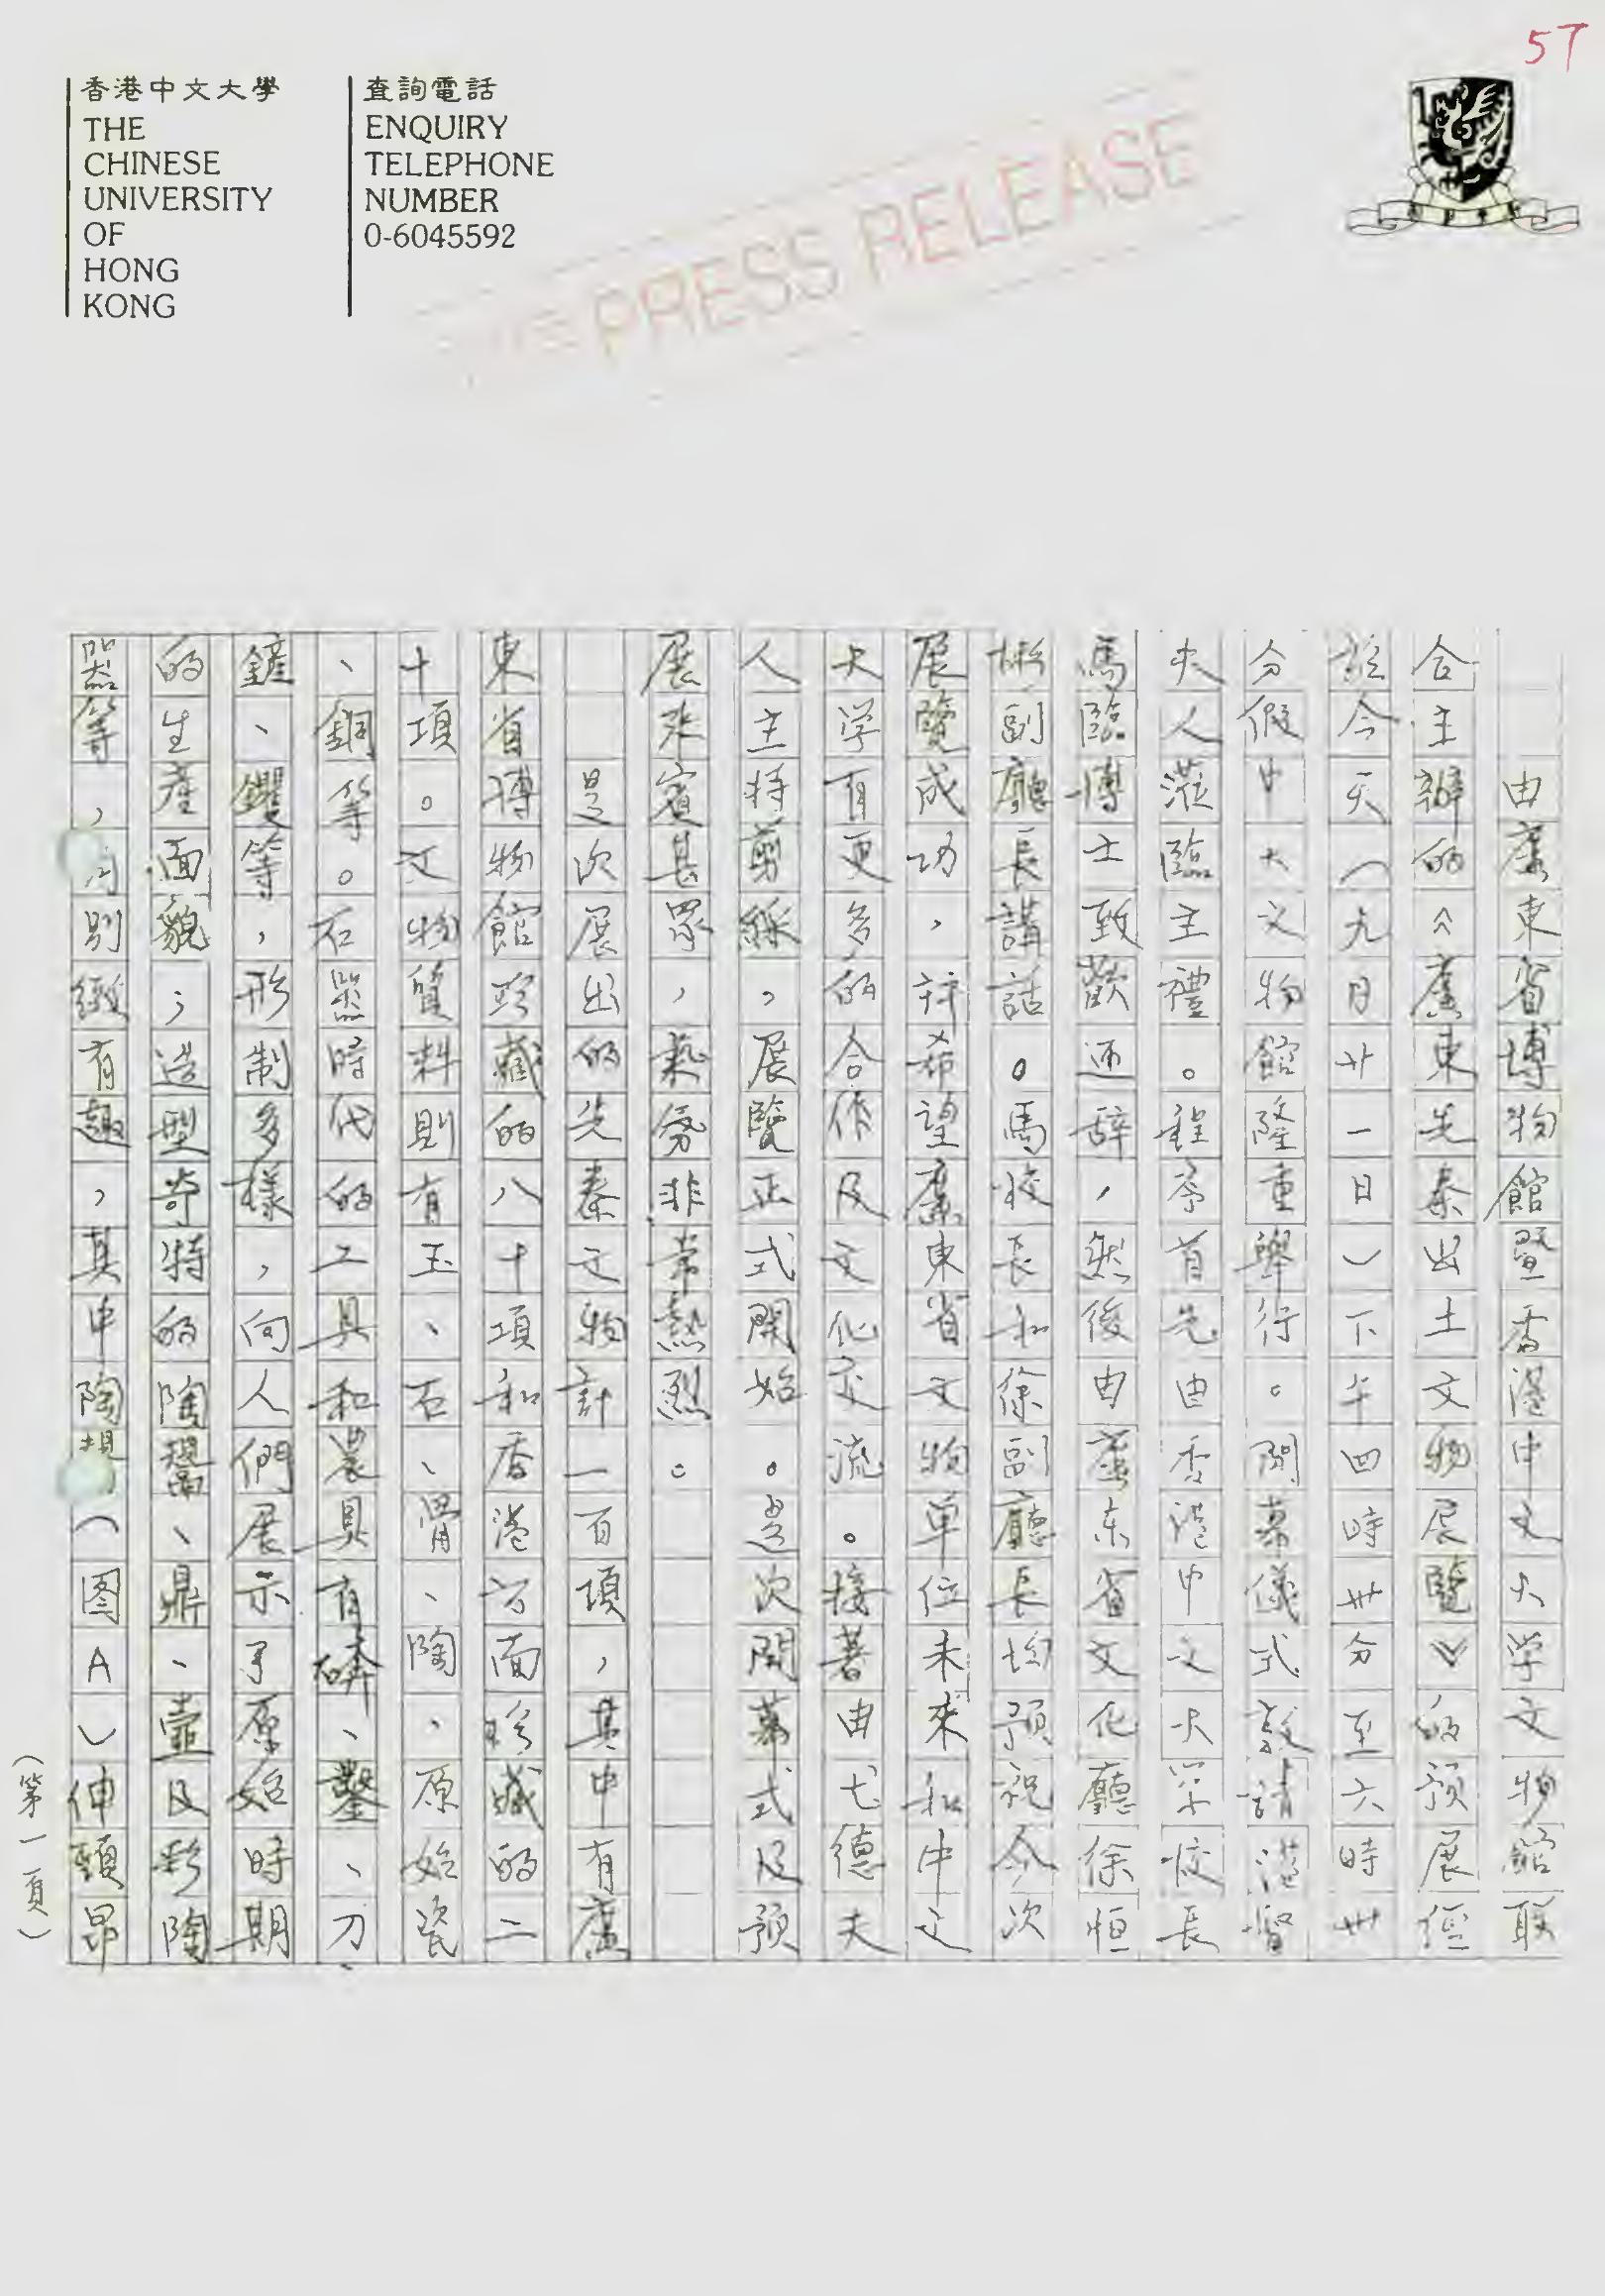 57
香港中文大學
THE
CHINESE
UNIVERSITY
OF
HONG
KONG
查詢電話
ENQUIRY
TELEPHONE
NUMBER
0-6045592
PRESS RELEASE
由廣東省博物館暨香港中文大学文物館联
合主辦的《廣東先秦出土文物展覽》的預展經
於今天（九月廿一日）下午四時卅分至六時卅
分假中大文物館隆重舉行。開幕儀式敦請港督
夫人蒞臨主禮。程序首先由香港中文大学校長
馬臨博士致歡迎辞，然後由廣东省文化廳徐恒
彬副廳長講話。馬校長和徐副廳長均預祝今次
展覽成功，并希望廣東省文物单位未來和中文
大学有更多的合作及文化交流。接著由弋德夫
人主持剪綵，展覽正式開始。是次開幕式及預
展來賓甚眾，氣氛非常熱烈。
是次展出的先秦文物計一百項，其中有廣
東省博物館珍藏的八十項和香港方面珍藏的二
十項。文物質料則有玉、石、骨、陶、原始瓷
、銅等。石器時代的工具和農具有錛、鑿、刀、
鏟、钁等，形制多樣，向人們展示了原始時期
的生產面貌；造型奇特的陶鬹、鼎、壺及彩陶
器等，別緻有趣，其中陶鬹（图A）伸頸昂
（第一頁）